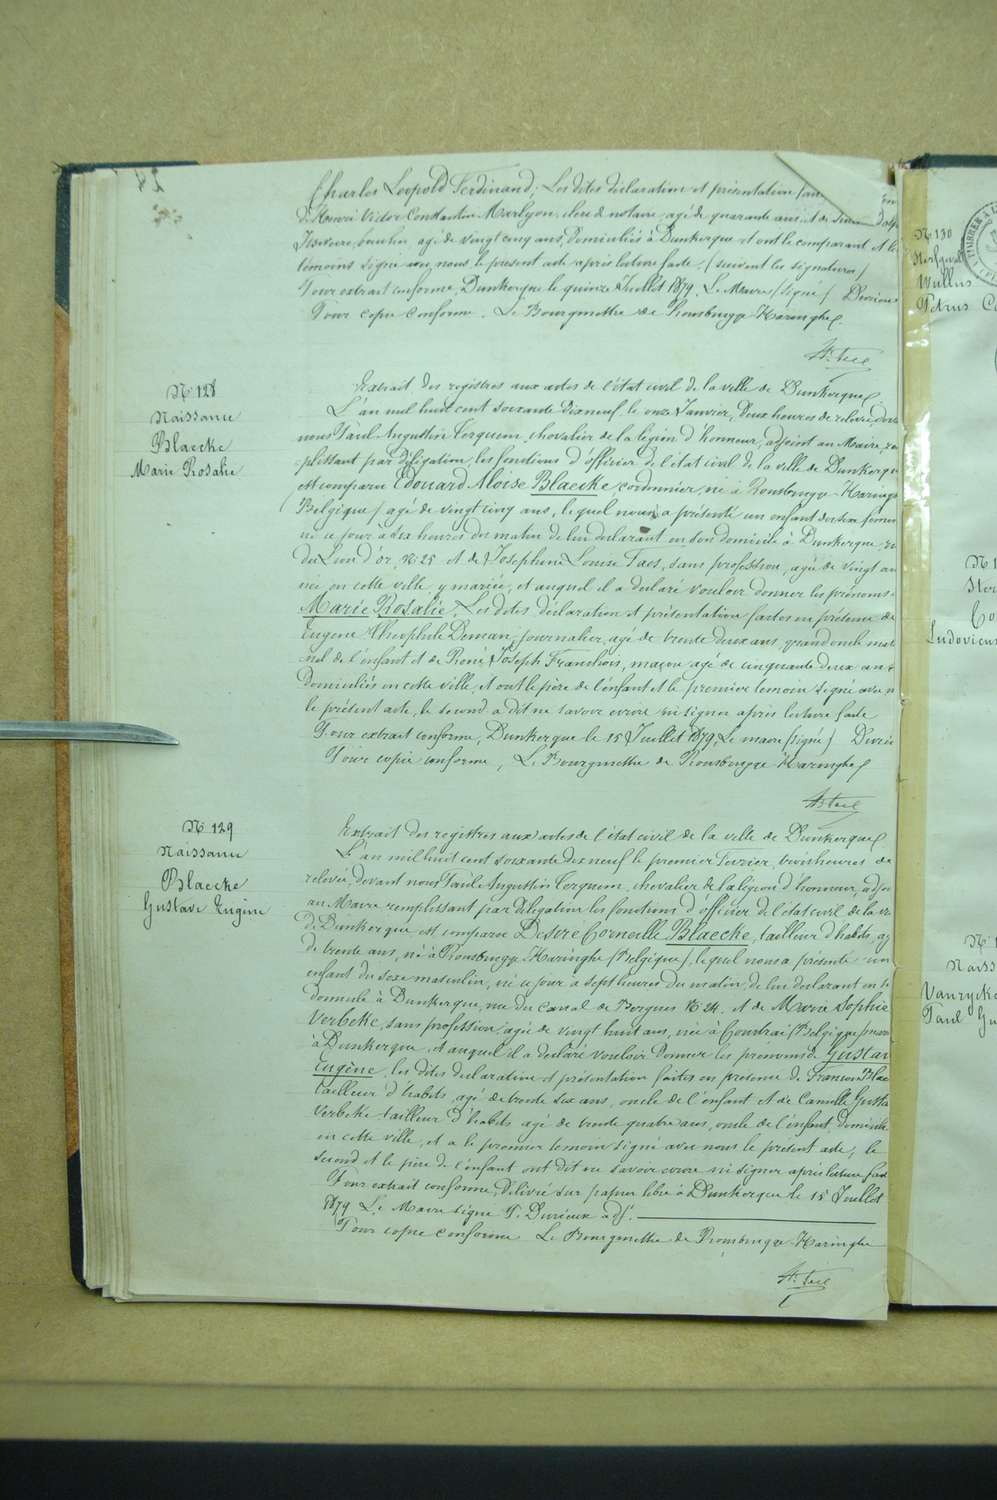 Charles Léopold Ferdinand; Les dites déclaration et présentation
d'Henri Victor Constantin Marlyon, clerc de notaire, agé de quarante ans et de
agé de vingt cinq ans, domiciliés à Dunkerque et ont le comparant et les
témoins signé avec nous le présent acte après lecture faite. (suivent les signatures)
Pour extrait conforme, Dunkerque le quinze Juillet 1879. Le Maire (signé)
Pour copie conforme. Le Bourgmestre de Rousbrugge Haringhe
N° 128
Naissance
Blaecke
Marie Rosalie
Extrait des registres aux actes de l'état civil de la ville de Dunkerque
L'an mil huit cent soixante dixneuf, le onze Janvier, deux heures de relevée, devant
nous Paul Augustin Terquem, chevalier de la légion d'honneur, adjoint au Maire, rem
plissant par délégation, les fonctions d'officier de l'état civil de la ville de Dunkerque
est comparu Edouard Aloïse Blaecke, cordonnier, né à Rousbrugge-Haringe
(Belgique) agé de vingt cinq ans, lequel nous a présenté un enfant du sexe féminin
né ce jour à dix heures du matin de lui déclarant en son domicile à Dunkerque, rue
du Lion d'or, N° 25 et de Joséphine Louise Faes, sans profession, agée de vingt ans
née en cette ville y mariée, et auquel il a déclaré vouloir donner les prénoms
Marie Rosalie. Les dites déclaration et présentation faites en présence de
Eugène Théophile Deman, journalier, agé de trente deux ans, grand oncle mater
nel de l'enfant et de René Joseph Franchois, maçon agé de cinquante deux ans
domiciliés en cette ville, et ont le père de l'enfant et le premier témoin signé avec n
le présent acte, le second a dit ne savoir écrire ni signer après lecture faite
Pour extrait conforme, Dunkerque le 15 Juillet 1879, Le maire (signé)
Pour copie conforme, Le Bourgmestre de Rousbrugge Haringhe
N° 129
Naissance
Blaecke
Gustave Eugène
Extrait des registres aux actes de l'état civil de la ville de Dunkerque
L'an mil huit cent soixante dixneuf le premier Février, trois heures de
relevée, devant nous Paul Augustin Terquem, chevalier de la légion d'honneur, adjoint
au Maire remplissant par délégation les fonctions d'officier de l'état civil de la ville
de Dunkerque est comparu Désiré Corneille Blaecke, tailleur d'habits, agé
de trente ans, né à Rousbrugge Haringhe (Belgique), lequel nous a présenté un
enfant du sexe masculin, né ce jour à sept heures du matin, de lui déclarant en so
domicile à Dunkerque, rue du canal de Bergues N° 24, et de Marie Sophie
Verbeke, sans profession, agée de vingt huit ans, née à Courtrai (Belgique)
à Dunkerque, et auquel il a déclaré vouloir donner les prénoms de Gustave
Eugène, les dites déclaration et présentation faites en présence de François Blae
tailleur d'habits, agé de trente six ans, oncle de l'enfant et de Camille Gustave
Verbeke tailleur d'habits agé de trente quatre ans, oncle de l'enfant, domiciliés
en cette ville, et a le premier témoin signé avec nous le présent acte, le
second et le père de l'enfant ont dit ne savoir écrire ni signer après lecture faite
Pour extrait conforme, Délivré sur papier libre à Dunkerque le 15 Juillet
1879 Le Maire signé P. Durieux adj.
Pour copie conforme Le Bourgmestre de Rousbrugge-Haringhe
N° 130
Wullus
Petrus C
Ludovicus
Naiss
Vanrycke
Paul Gu